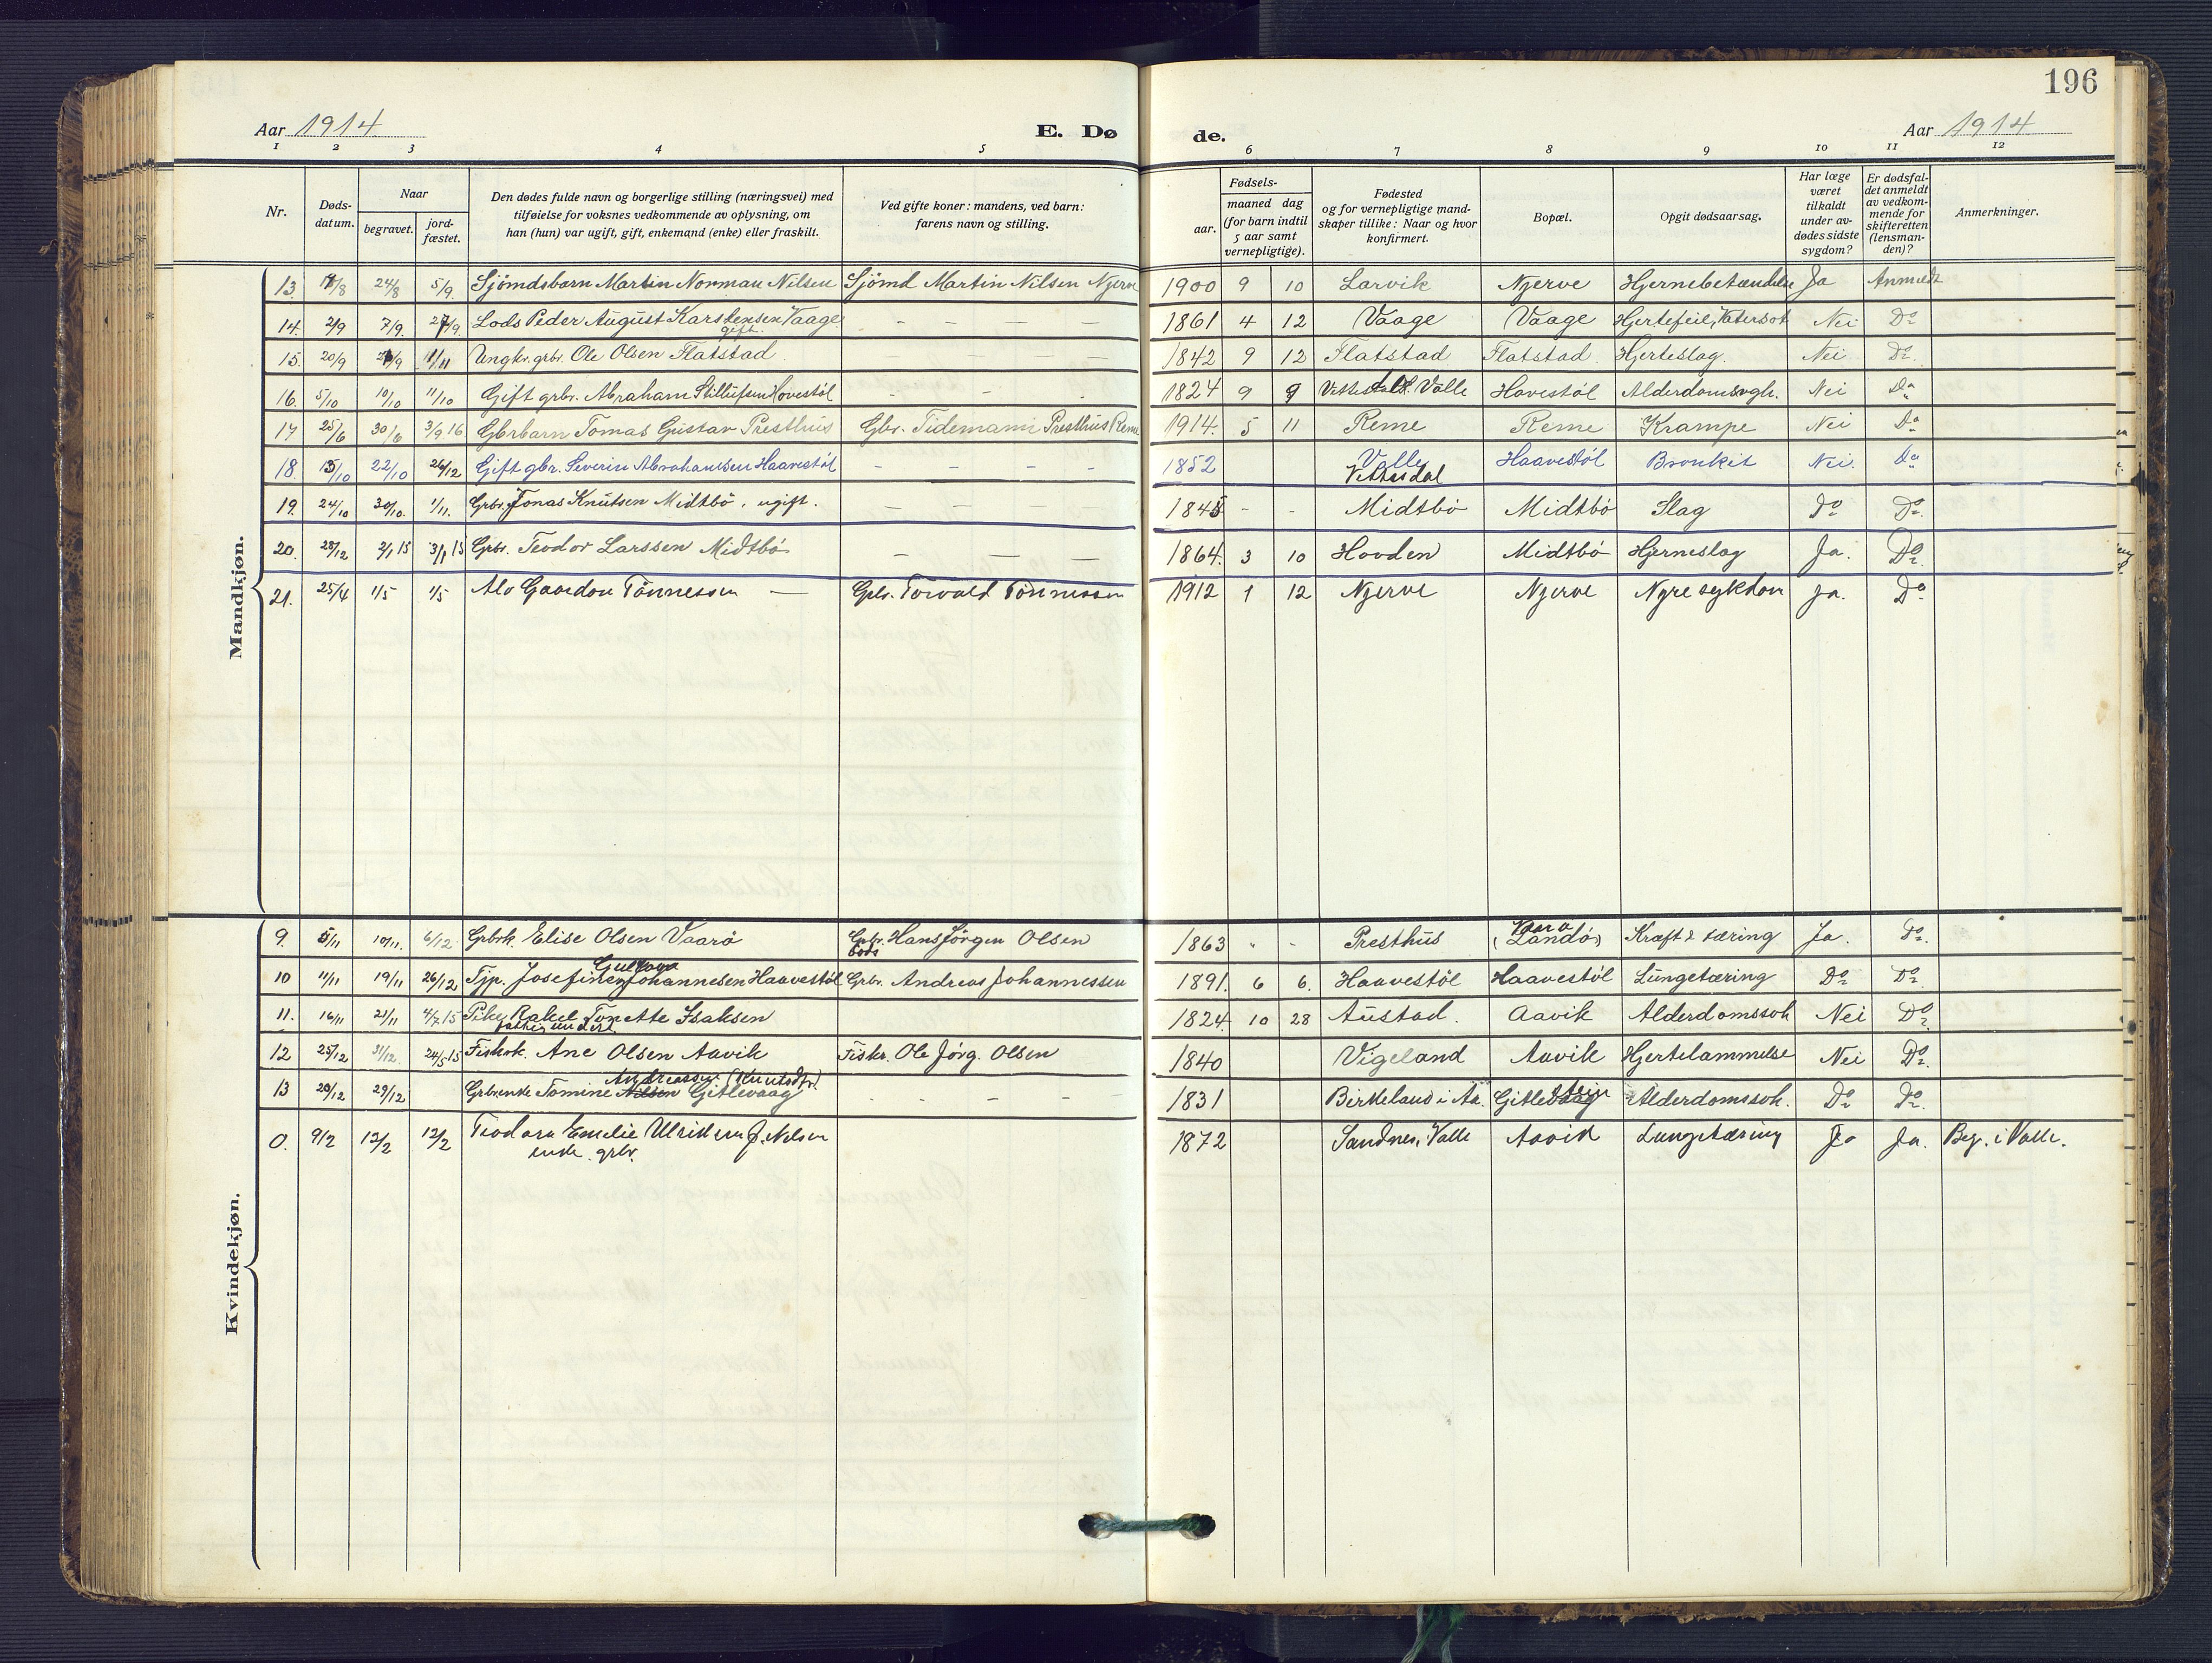 196
Aar 1914
E. Dø
de.
Aar 1914
1 2 3 4 5 6 7 8 9 10 11 12
Nr.
Døds-
datum.
Naar
begravet.
jord-
fæstet.
Den dødes fulde navn og borgerlige stilling (næringsvei) med
tilføielse for voksnes vedkommende av oplysning, om
han (hun) var ugift, gift, enkemand (enke) eller fraskilt.
Ved gifte koner: mandens, ved barn:
farens navn og stilling.
Fødsels-
aar.
maaned dag
(for barn indtil
5 aar samt
vernepligtige).
Fødested
og for vernepligtige mand-
skaper tillike: Naar og hvor
konfirmert.
Bopæl.
Opgit dødsaarsag.
Har læge
været
tilkaldt
under av-
dødes sidste
sygdom?
Er dødsfal-
det anmeldt
av vedkom-
mende for
skifteretten
(lensman-
den)?
Anmerkninger.
Mandkjøn.
13. 24/8 5/9. Sjömdsbarn Martin Norman Nilsen Sjömd Martin Nilsen Njerve 1900 9 10 Larvik Njerve Hjernebetændelse Ja Anmeldt
14. 2/9 7/9. 27/9. Lods Peder August Karstensen Vaage — — — — 1861 4 12 Vaage Vaage Hjertefeil, Vatersot Nei Do
gift.
15. 20/9 11/11 Ungkr. grbr. Ole Olsen Flatstad — — 1842 9 12 Flatstad Flatstad. Hjerteslag. Nei Do
16. 5/10 10/10 11/10 Gift grbr. Abraham Hovestøl - - - 1824 9 9 Valle Hovestöl Nei Do
17 25/6 30/6 3/9 16 Gbrbarn Tomas Gustav Presthus Gbr. Tidemann Presthus Reme 1914. 5 11 Reme Reme Krampe Nei Do
18 15/10 22/10 26/12 Gift gbr. Severin Abrahamsen Haavestöl - - - - 1852 Valle Haavestöl Bronkit Nei. Do
Vittesdal
19. 24/10 30/10. 1/11. Grbr. Jonas Knutsen Midtbö, ugift. — — 1845 - - Midtbö Midtbö Slag Do Do
20. 28/12 2/1 15 3/1 15 Grbr. Teodor Larssen Midtbö — — — 1864. 3 10 Hovden Midtbö Hjerneslag Ja. Do
21. 25/4 1/5 1/5 Alv Gaardon Tönnessen — Grbr. Torvald Tönnessen 1912 1 12 Njerve Njerve Nyresykdom Ja. Do
Kvindekjøn.
9. 5/11 10/11. 6/12 Grbrk. Elise Olsen Vaarö Grbr. Hans Jörgen Olsen 1863 " - Presthus (Landö) Kræft & tæring Ja. Do
Lods
Vaarö
10 11/11 19/11 26/12 Tjp. Josefine Johannesen Haavestöl Grbr. Andreas Johannessen 1891. 6 6. Haavestöl Haavestöl Lungetæring Do Do
11. 16/11 21/11 4/7 15 Pike Rakel Tonette Isaksen 1824 10 28 Austad. Aavik Alderdomssvk Nei Do
12 25/12 31/12 24/5 15 Fiskrk. Ane Olsen Aavik Fiskr. Ole Jörg. Olsen 1840 Vigeland Aavik Hjertelammelse Nei Do
13 20/12 29/12 Grbrenke Tomine Nilsen Gitlevaag - - - - 1831 Birkeland i Aa. Gitlevaag Alderdomssvk. Do Do
Andreassen (Knutsdtr.)
0. 9/2 12/2 12/2 Teodora Emelie Ulrikken J. Nilsen 1872 Sandnes, Valle Aavik Lungetæring Ja Ja. Beg. i Valle.
enke grbr.